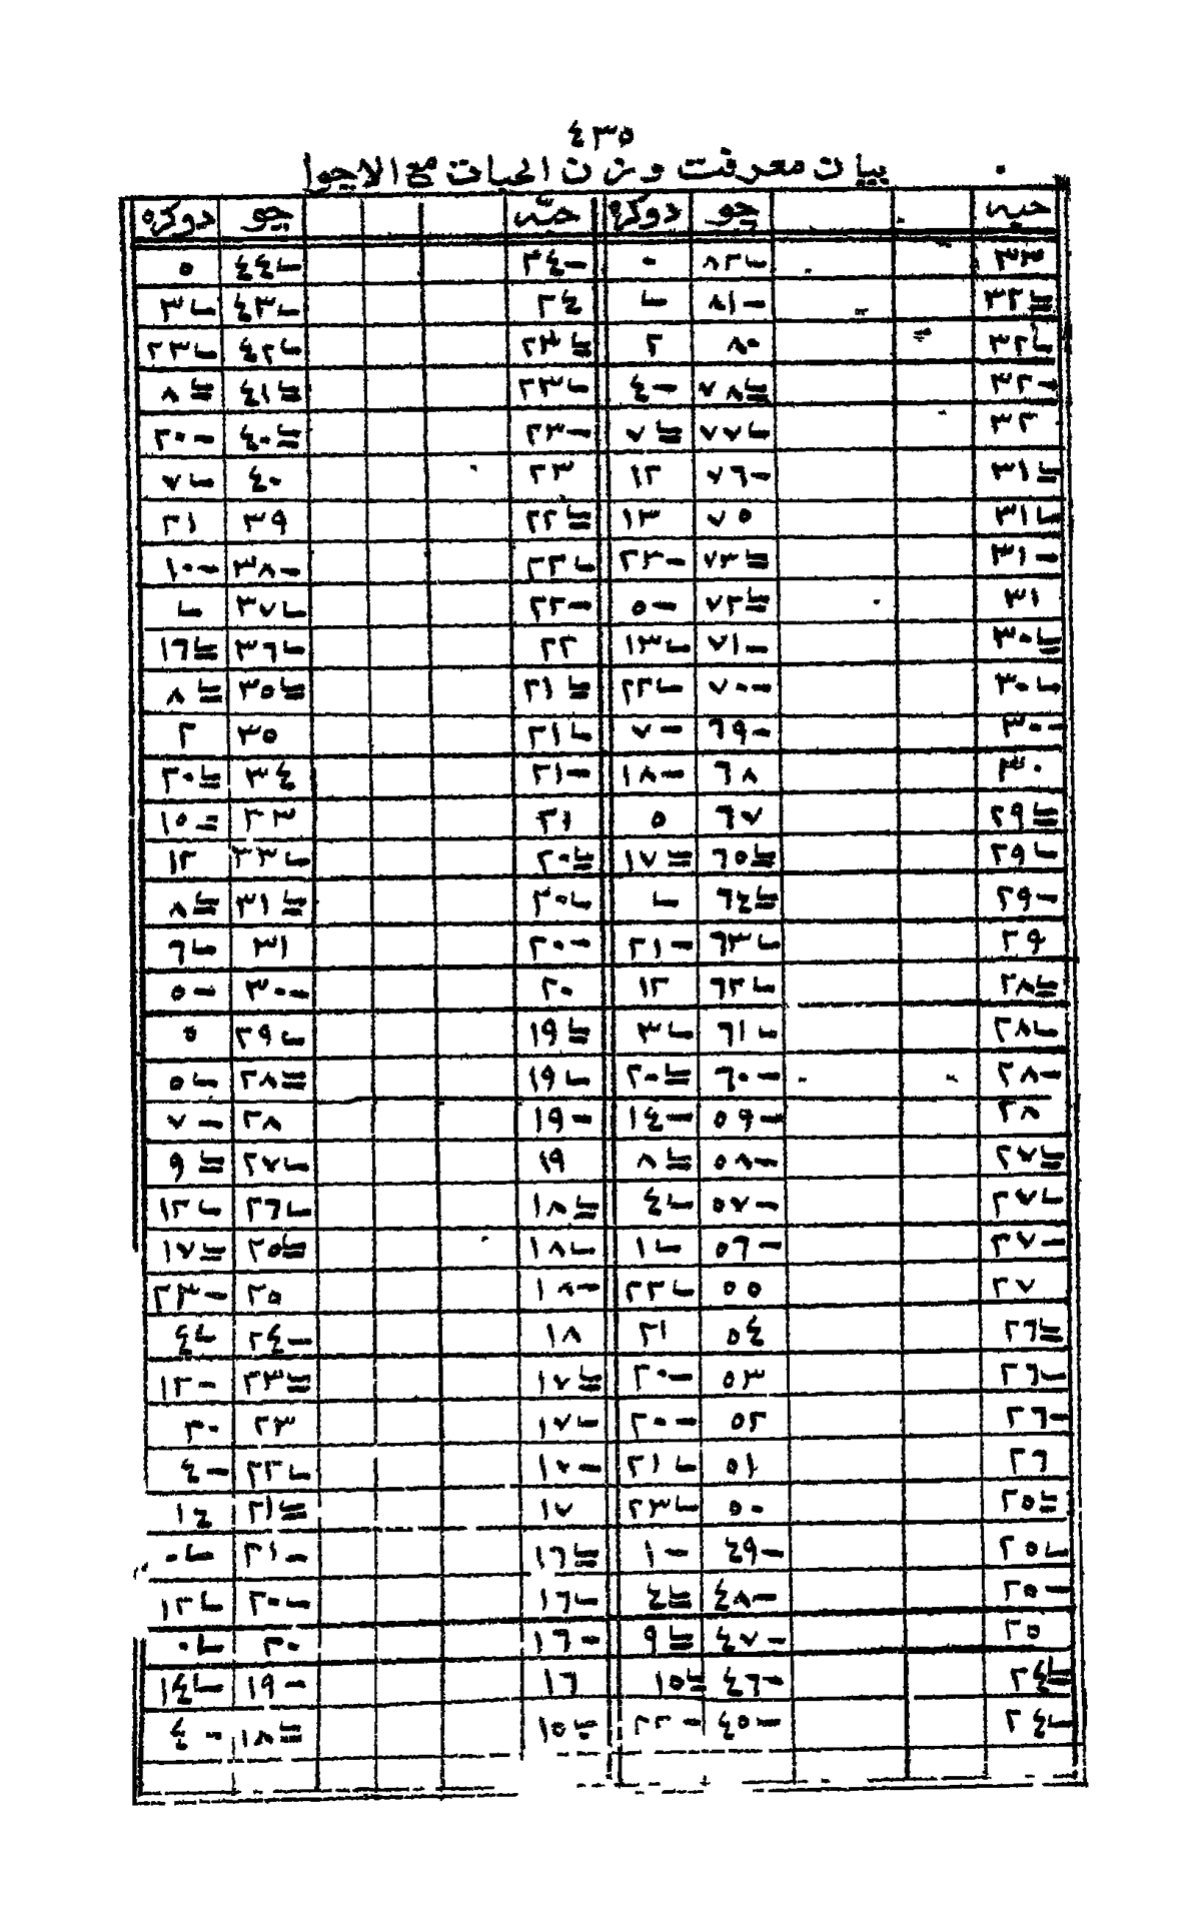 ٤٣٥
بيان معرفت وزن الحبات مع الاچوا
حبه چو دوكره حبّه چو دوكره
٣٣ ٨٢ ٠ ٢٤- ٤٤ ٥
٣٢ ٨١- ٢٤ ٤٣ ٣
٣٢ ٨٠ ٢ ٢٣ ٤٢ ٢٣
٣٢- ٧٨ ٤- ٢٣ ٤١ ٨
٣٢ ٧٧ ٧ ٢٣- ٤٠ ٢٠-
٣١ ٧٦- ١٢ ٢٣ ٤٠ ٧
٣١ ٧٥ ١٣ ٢٢ ٣٩ ٢١
٣١- ٧٣ ٢٣- ٢٢ ٣٨- ١٠-
٣١ ٧٢ ٥- ٢٢- ٣٧
٣٠ ٧١- ١٣ ٢٢ ٣٦ ١٦
٣٠ ٧٠- ٢٢ ٢١ ٣٥ ٨
٣٠- ٦٩- ٧- ٢١ ٣٥ ٢
٣٠ ٦٨ ١٨- ٢١- ٣٤ ٢٠
٢٩ ٦٧ ٥ ٢١ ٣٣ ١٥
٢٩ ٦٥ ١٧ ٢٠ ٣٢ ١٢
٢٩- ٦٤ ٢٠ ٣١ ٨
٢٩ ٦٣ ٢١- ٢٠- ٣١ ٦
٢٨ ٦٢ ١٢ ٢٠ ٣٠- ٥-
٢٨ ٦١ ٣ ١٩ ٢٩ ٥
٢٨- ٦٠- ٢٠ ١٩ ٢٨ ٥
٢٨ ٥٩- ١٤- ١٩- ٢٨ ٧-
٢٧ ٥٨- ٨ ١٩ ٢٧ ٩
٢٧ ٥٧- ٤ ١٨ ٢٦ ١٢
٢٧- ٥٦- ١ ١٨ ٢٥ ١٧
٢٧ ٥٥ ٢٢ ١٨- ٢٥ ٢٣-
٢٦ ٥٤ ٢١ ١٨ ٢٤- ٤
٢٦ ٥٣ ٢٠- ١٧ ٢٣ ١٢-
٢٦- ٥٢ ٢٠- ١٧ ٢٣
٢٦ ٥١ ٢١ ١٧- ٢٢ ٤-
٢٥ ٥٠ ٢٣ ١٧ ٢١ ١٤
٢٥ ٤٩- ١- ١٦ ٢١-
٢٥- ٤٨- ٤ ١٦ ٢٠- ١٢
٢٥ ٤٧- ٩ ١٦- ٢٠
٢٤ ٤٦- ١٥ ١٦ ١٩- ١٤
٢٤ ٤٥- ٢٢- ١٥ ١٨ ٤-